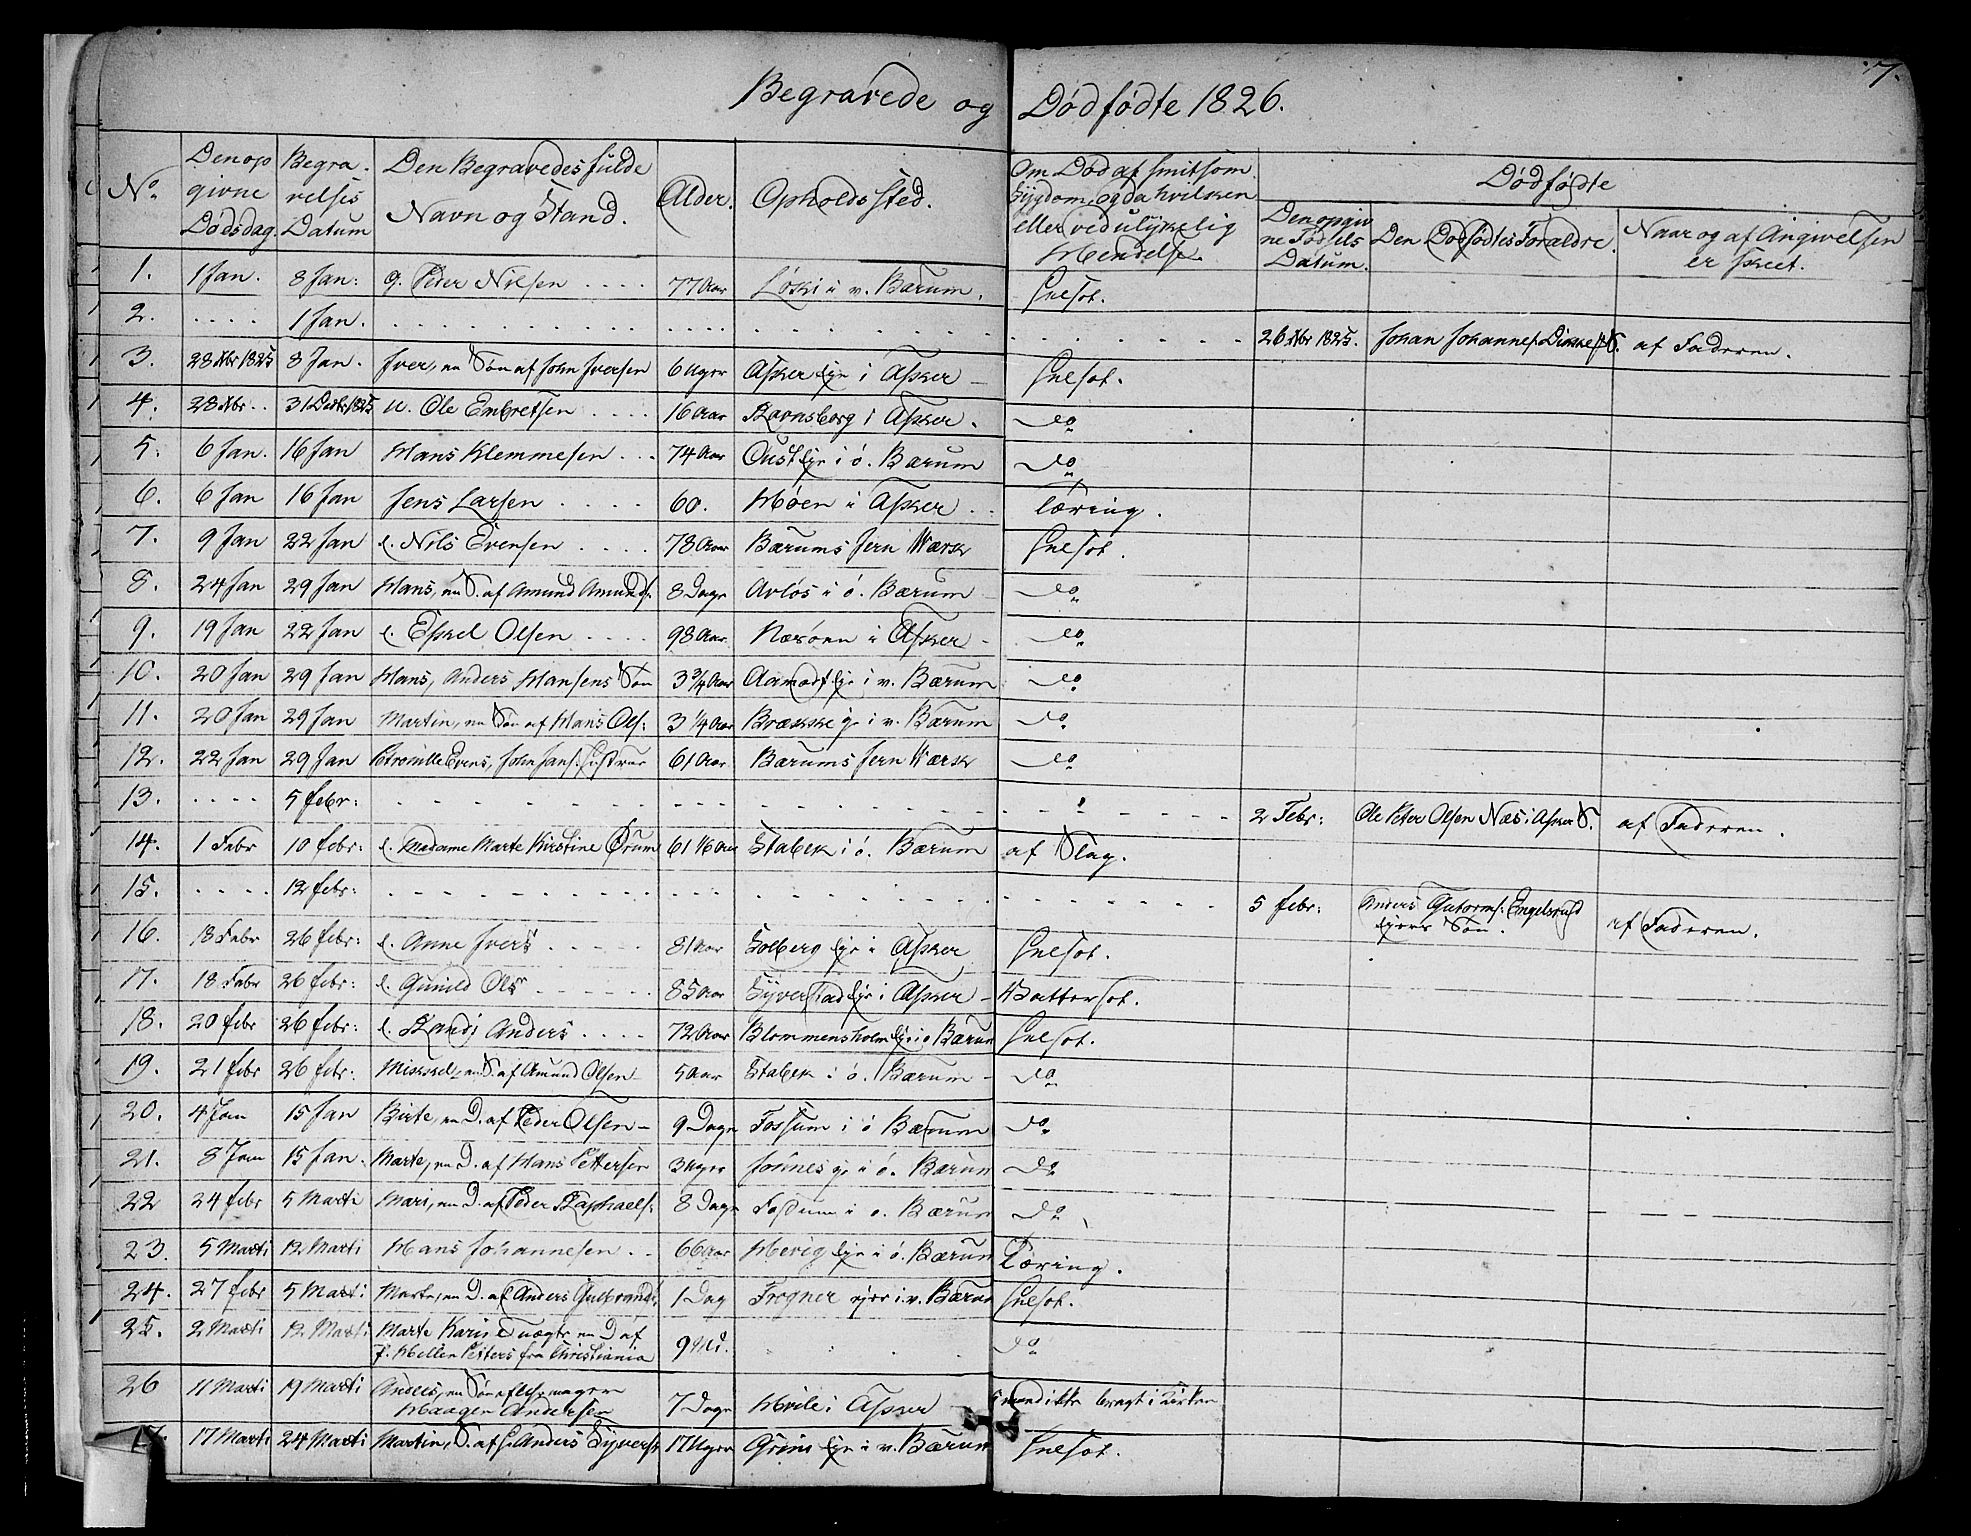 7.
Begravede og Dødfødte 1826.
No. Den opgivne Dødsdag. Begravelses Datum Den Begravedes fulde Navn og Stand. Alder. Opholds Sted. Om Død af smitsom Sygdom, og da hvilken eller ved ulykkelig Hendelse. Dødfødte
Den opgivne Fødsels Datum. Den Dødfødtes Forældre. Naar og af Angivelsen er skeet.
1. 1 Jan. 8 Jan: g. Peder Nilsen .... 77 Aar Løski i v. Bærum.
2. .... 1 Jan. 26 Xbr 1825. Johan Johannes. af Faderen.
3. 28 Xbr 1825 8 Jan. Iver, en Søn af John Iversen 6 Uger Asker i Asker
4. 28 Xbr .. 31 Decbr 1825 u. Ole Embretsen .... 16 Aar Ravnsborg i Asker. do
5. 6 Jan. 16 Jan Hans Klemmesen ... 74 Aar i ø. Bærum do
6. 6 Jan 16 Jan Jens Larsen .... 60. Høen i Asker .. Tæring.
7. 9 Jan 22 Jan e. Nils Evensen .... 78 Aar Bærums Jern Værk
8. 24 Jan 29 Jan Hans, en S. af Amund Amunds: 8 Dage Avløs i ø. Bærum do
9. 19 Jan 22 Jan e. Eskel Olsen .... 98 Aar. Næsøen i Asker do
10. 20 Jan 29 Jan Hans, Anders Hansens Søn 3 3/4 Aar Aamodt i v. Bærum do
11. 20 Jan 29 Jan Martin, en Søn af Hans Ols: 3 1/4 Aar Brække i v. Bærum do
12. 22 Jan 29 Jan Petronille Evens, John Jans: Hustrue 61 Aar. Bærums Jern Værk do
13. .... 5 febr: 2 Febr: Ole Peter Olsen Næs i Asker S. af Faderen.
14. 1 Febr 10 febr: e. Madame Marte Kirstine Ørum 61 1/6 Aar Stabek i ø. Bærum af Slag.
15. .... 12 febr: 5 febr: Anders Gutorms: Engelsrud ejers Søn. af Faderen.
16. 18 Febr 26 febr: e. Anne Ivers .... 81 Aar Solberg i Asker
17. 18 Febr 26 febr: e. Gunild Ols .... 85 Aar Syverstad i Asker
18. 20 febr 26 febr: e. Randi Anders .... 72 Aar Blommensholm i ø Bærum
19. 21 febr 26 febr: Mikkel, en S. af Amund Olsen 5 Aar Stabek i ø. Bærum do
20. 4 Jan 15 Jan Birte, en D. af Peder Olsen 9 Dage Fossum i ø Bærum do
21. 8 Jan 15 Jan. Marte, en D. af Hans Pettersen 3 Uger i ø. Bærum do
22 24 febr 5 Marti Mari, en D. af Peder Raphaels: 8 Dage Fossum i ø. Bærum do
23. 5 Marti 12 Marti Hans Johannesen .. 66 Aar i ø. Bærum Tæring.
24. 27 febr 5 Marti Marte, en D. af Anders Gulbrands: 1 Dag Frogner i v. Bærum
25. 2 Marti 12 Marti Marte Karine en D af
Petters fra Christiania 9 do
26 11 Marti 19 Marti Anders, en Søn af
Haagen Andersen 7 Dage Hvile i Asker bragt i Kirken
27. 17 Marti 24 Marti Martin, S. af Anders Syvers: 17 Uger Grini i v. Bærum